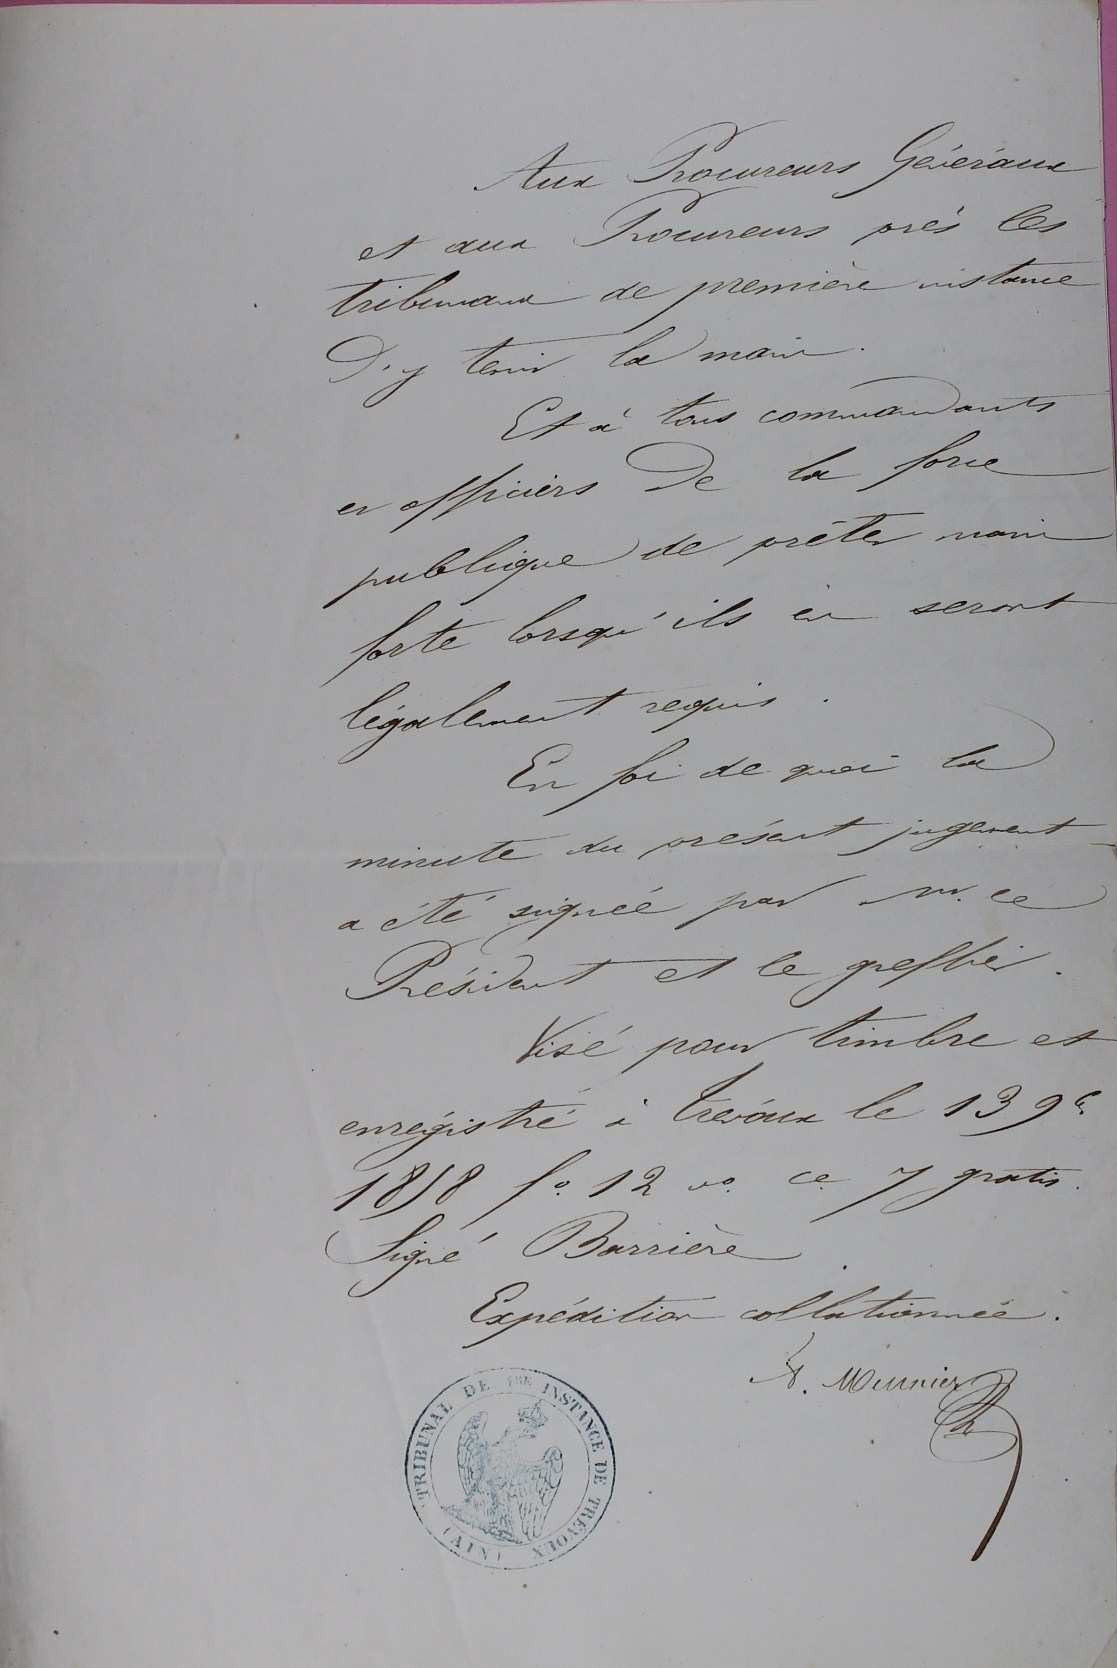 Aux Procureurs Généraux
et aux Procureurs près les
tribunaux de première instance
d'y tenir la main.
Et à tous commandants
et officiers de la force
publique de prêter main
forte lorsqu'ils en seront
légalement requis.
En foi de quoi la
minute du présent jugement
a été signée par M. le
Président et le greffier.
Visé pour timbre et
enrégistré à Trévoux le 13 9e
1858 fo. 12 vo. ce 7 gratis.
Signé Barrière.
Expédition collationnée.
Meunier
TRIBUNAL DE 1RE INSTANCE DE TRÉVOUX
(AIN)